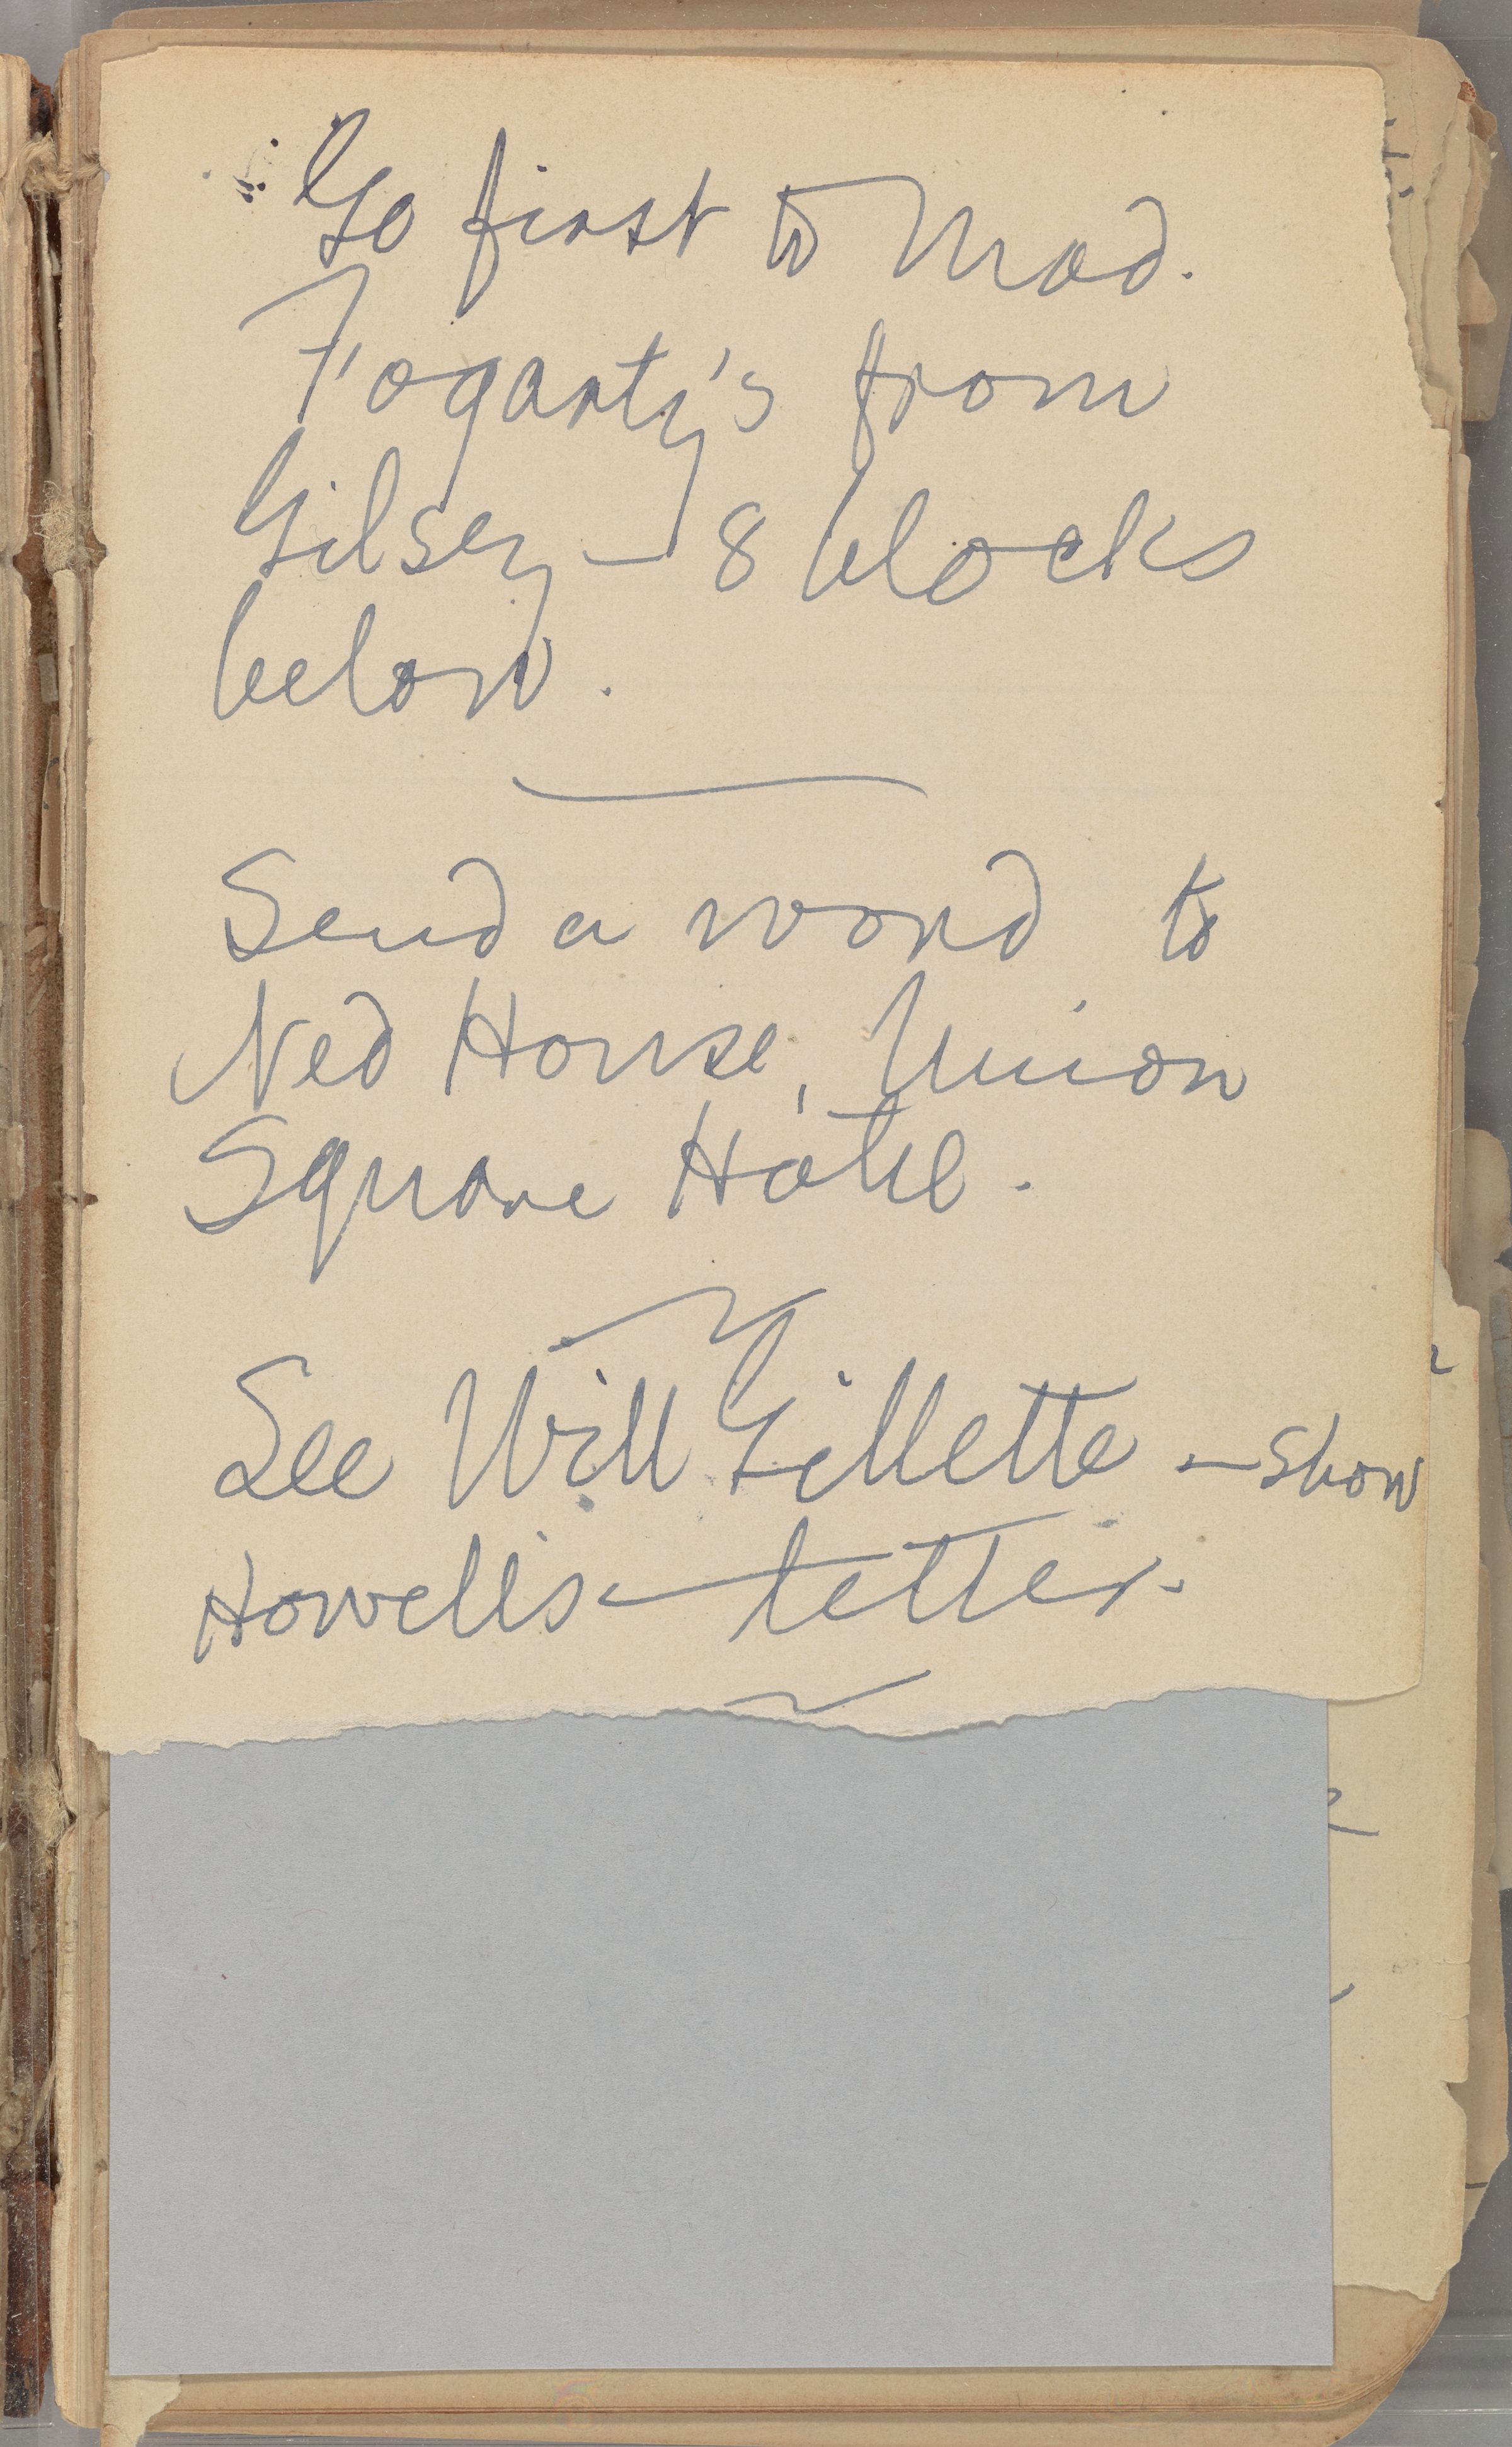 Go first to Mad.
Fogarty's from
Gilsey — 8 blocks
below.
Send a word to
Ned House, Union
Square Hotel.
See Will Gillette — show
Howells letter.